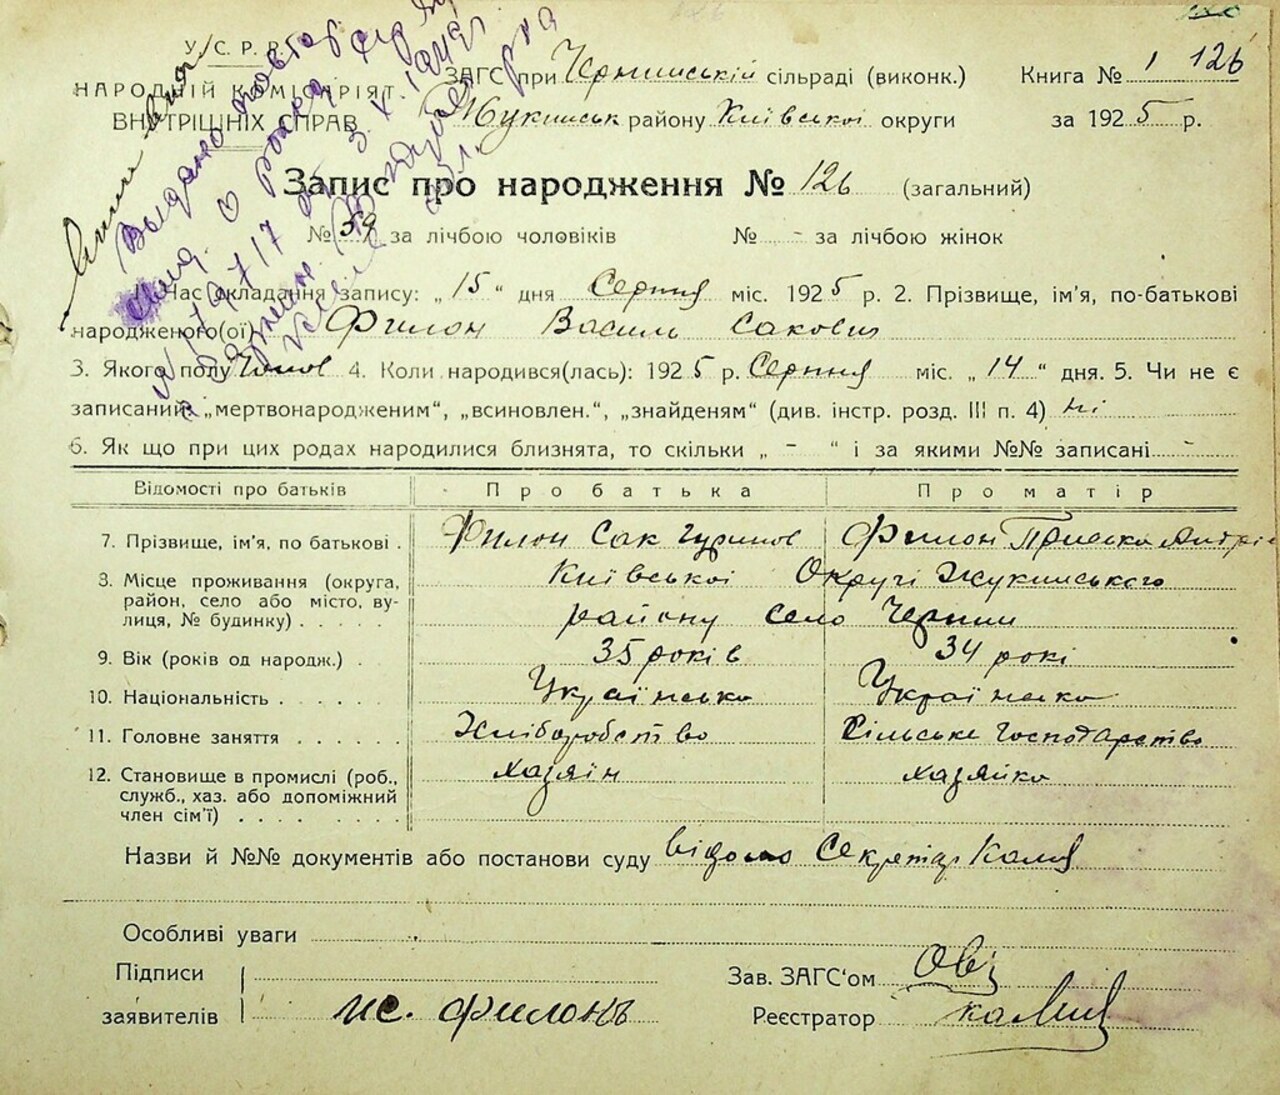 У.С.Р.Р.
НАРОДНІЙ КОМІСАРІЯТ
ВНУТРІШНІХ СПРАВ
ЗАГС при Чернинській сільраді (виконк.)
Жукинськ району Київської округи
Книга № 1 126
за 1925 р.
Запис про народження № 126 (загальний)
№ 59 за лічбою чоловіків № - за лічбою жінок
Выдано повтор
о рожд
3 X 1949
Час складання запису: „15“ дня Серпня міс. 1925 р. 2. Прізвище, ім'я, по-батькові
народженого(ої) Филон Василь Сакович
3. Якого полу Чолов 4. Коли народився(лась): 1925 р. Серпня міс. „14“ дня. 5. Чи не є
записаний: „мертвонародженим“, „всиновлен.“, „знайденям“ (див. інстр. розд. III п. 4) ні
6. Як що при цих родах народилися близнята, то скільки „ - “ і за якими №№ записані -
Відомості про батьків Про батька Про матір
7. Прізвище, ім'я, по батькові . Филон Сак Филон Приська
8. Місце проживання (округа, район, село або місто, вулиця, № будинку) . . . . . Київської Округі Жукинського
району село Чернин
9. Вік (років од народж.) . 35 років 34 рокі
10. Національність . . . . . Українська Українка
11. Головне заняття . . . . . . Хліборобство Сільське Господарство
12. Становище в промислі (роб.,
служб., хаз. або допоміжний
член сім'ї) . . . . . . . хазяїн хазяйка
Назви й №№ документів або постанови суду відомо Секретар
Особливі уваги
Підписи
заявителів Ис. Филонъ
Зав. ЗАГС'ом
Реєстратор